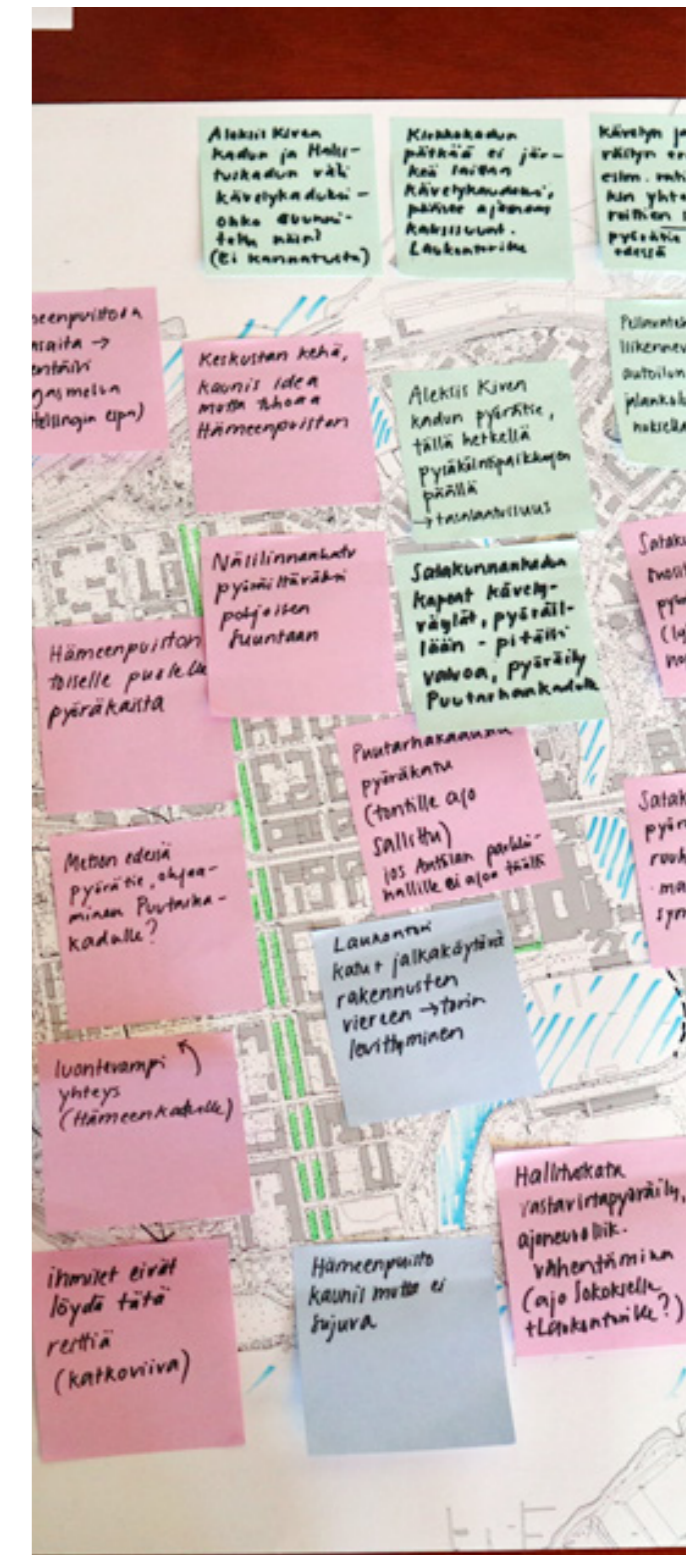 Aleksis Kiven
kadun ja Halli-
tuskadun väli
kävelykaduksi -
(Ei kannatusta)
Kirkkokadun
pätkää ei jär-
keä laittaa
kävelykaduksi,
pääsee ajamaan
kaksisuunt.
Laukontorille
Kävelyn ja
pyörätie
edessä
Keskustan kehä,
kaunis idea
mutta tuhoaa
Hämeenpuiston
Aleksis Kiven
kadun pyörätie,
tällä hetkellä
pysäköintipaikkojen
päällä
→ tasalaatuisuus
autoilun
Näsilinnankatu
pyöräiltäväksi
pohjoisen
suuntaan
Satakunnankadun
kapeat kävely-
väylät, pyöräil-
lään - pitäisi
valvoa, pyöräily
Puutarhankadulle
Hämeenpuiston
toiselle puolelle
pyöräkaista
Puutarhakadusta
pyöräkatu
(tontille ajo
sallittu)
jos Anttilan parkki-
hallille ei ajoa täältä
Metson edessä
pyörätie, ohjaa-
minen Puutarha-
kadulle?
Laukontori
katu + jalkakäytävä
rakennusten
viereen → torin
levittyminen
luontevampi
yhteys
(Hämeenkadulle)
Hallituskatu
vastavirtapyöräily,
ajoneuvoliik.
vähentäminen
(ajo Sokokselle
+Laukontorille?)
ihmiset eivät
löydä tätä
reittiä
(katkoviiva)
Hämeenpuisto
kaunis mutta ei
sujuva